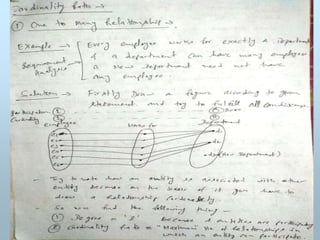 Cardinality Ratio →
① One to Many Relationship →
Example → Every employee works for exactly a department
Requirement & a department can have many employees
Analysis A New Department need not have
any employee.
Solution → Firstly Draw a figure according to your
statement and try to fulfill all
Participation
Employee Works for Department
(New Department)
Try to note how an entity is associated with other
entity because on the basis of it you have to
draw a Relationship
So we find the following thing —
① Degree = '2' because 2 entities are participating
② Cardinality Ratio = Maximum no. of relationships in
which an entity can participate.